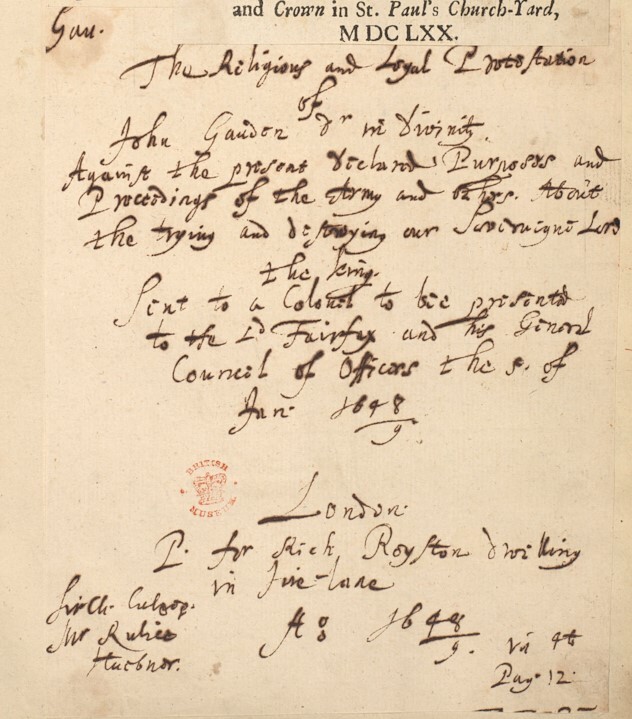 and Crown in St. Paul's Church-Yard,
MDCLXX.
Gau.
The Religious and Loyal Protestation
of
John Gauden Dr in Divinity.
Against the present declared Purposes and
Proceedings of the Army and othrs. About
the trying and destroying our Sovereigne Lord
the king.
Sent to a Colonel to bee presented
to the Ld Fairfex and his General
Council of Officers the 5. of
Jan: 1648/9.
BRITISH MUSEUM
London.
P. for Rich. Royston dwelling
in Jvie-lane
Sir Ch. Culpep.
Mr Rulice
Huebner.
Ao 1648/9.
in 4t
Pag. 12.